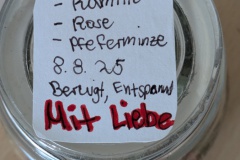 - Kamille
- Rose
- Pfeferminze
8.8.25
Beruigt, Entspannt
Mit Liebe